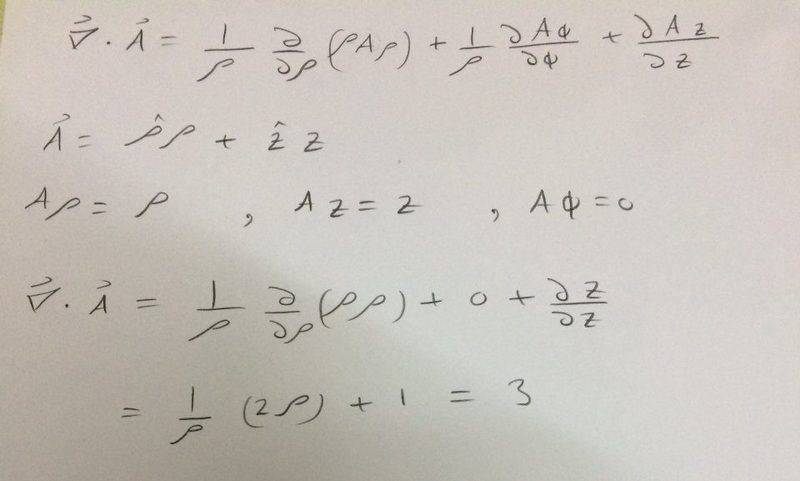 ∇⃗ · A⃗ = 1/ρ ∂/∂ρ (ρAρ) + 1/ρ ∂Aφ/∂φ + ∂Az/∂z
A⃗ = ρ̂ρ + ẑ z
Aρ = ρ , Az = z , Aφ = 0
∇⃗ · A⃗ = 1/ρ ∂/∂ρ (ρρ) + 0 + ∂z/∂z
= 1/ρ (2ρ) + 1 = 3